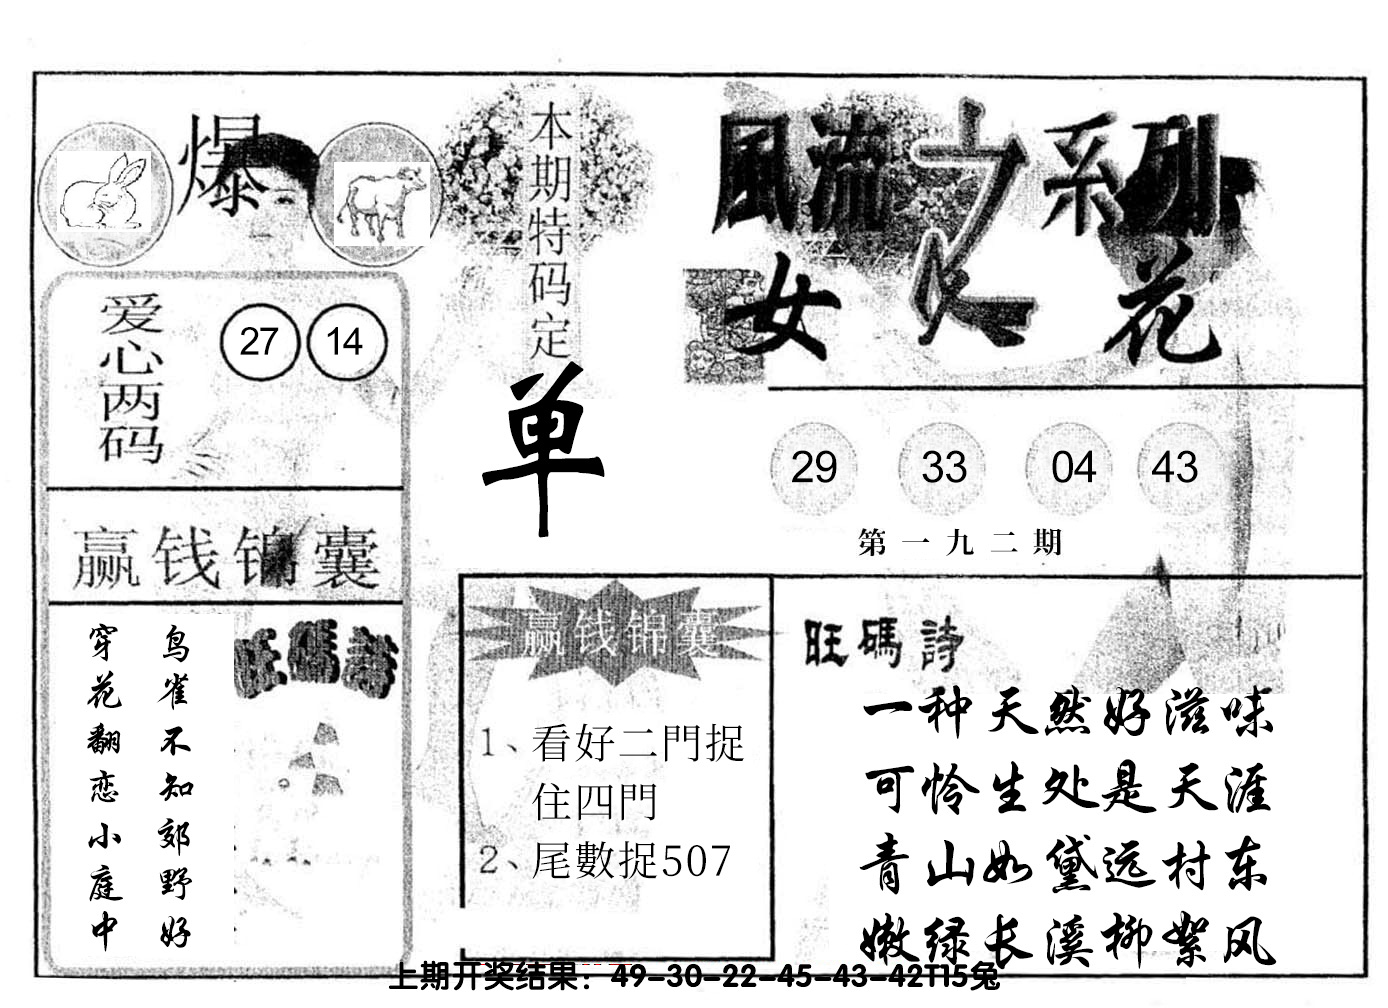 爆
爱心两码
27 14
赢钱锦囊
鸟雀不知郊野好
穿花翻恋小庭中
旺碼詩
本期特码定
单
赢钱锦囊
1、看好二門捉
住四門
2、尾數捉507
風流之系列
女人花
29 33 04 43
第一九二期
旺碼詩
一种天然好滋味
可怜生处是天涯
青山如黛远村东
嫩绿长溪柳絮风
上期开奖结果：49-30-22-45-43-42T15兔